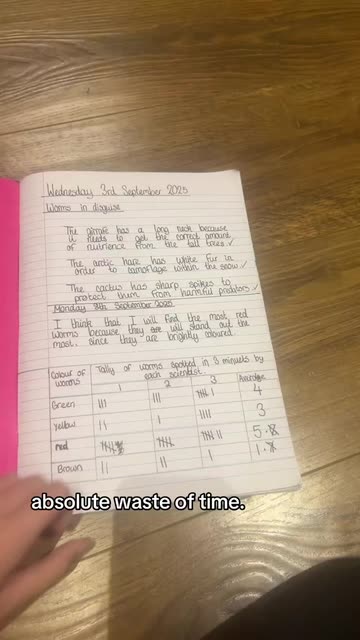 Wednesday 3rd September 2025
Worms in disguise
The giraffe has a long neck because
it needs to get the correct amount
of nutrience from the tall trees ✓
The arctic hare has white fur in
order to camoflage within the snow ✓
The cactus has sharp spikes to
protect them from harmful preditors ✓
Monday 8th September 2025
I think that I will find the most red
worms because they are will stand out the
most. since they are brightly coloured.
Colour of worms Tally of worms spotted in 3 minuets by each scientist. Average
1 2 3
Green ||| ||| 𝍸 | 4
Yellow || | |||| 3
red 𝍸 𝍸 || 5.
Brown || || | 1.
absolute waste of time.